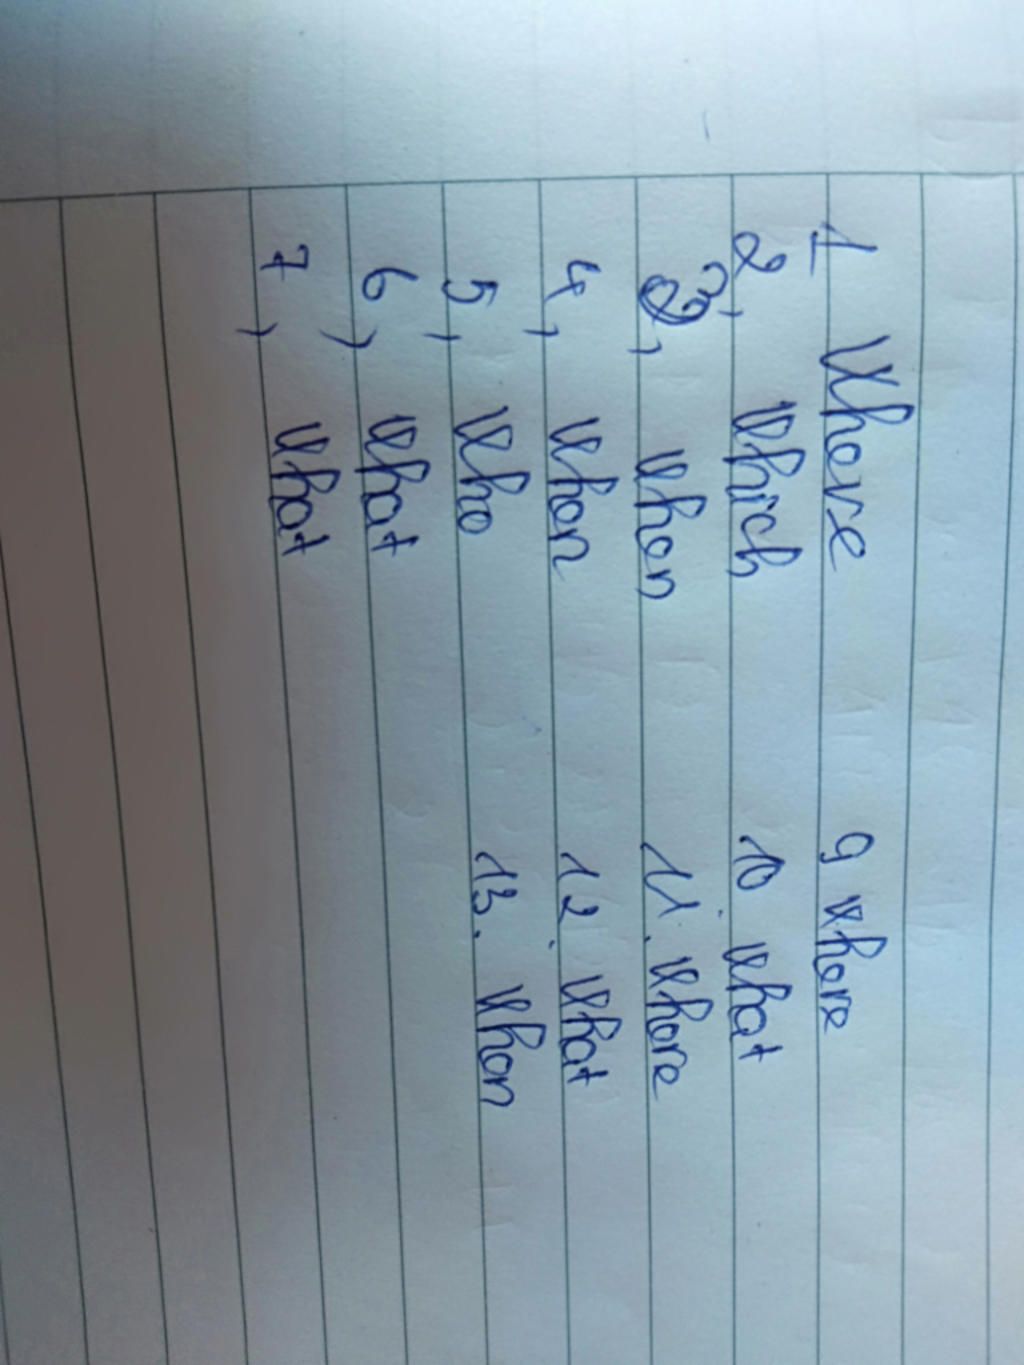 1 Where
2, which
3, when
4, when
5, who
6, what
7, what
9 where
10 what
11. where
12. what
13. when